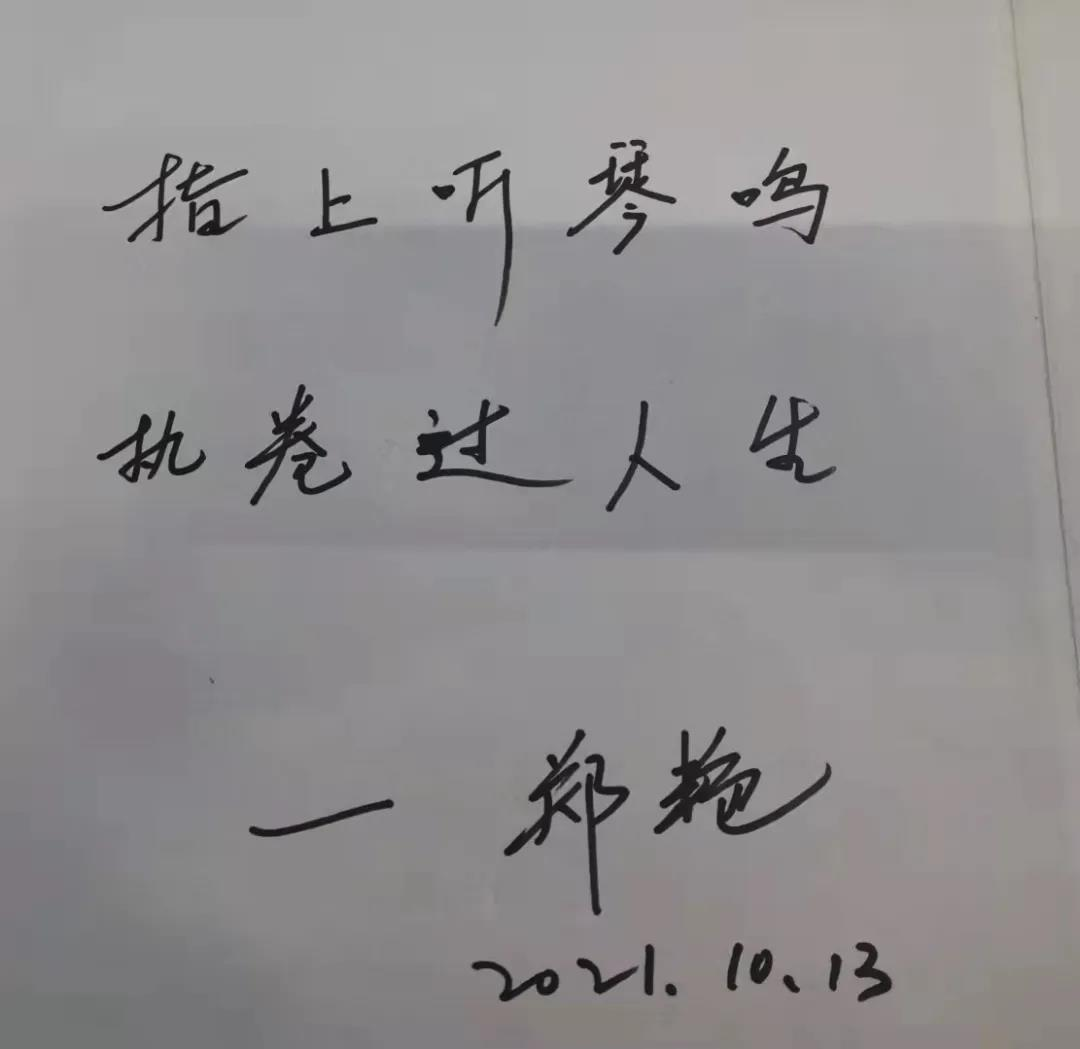 指上听琴鸣
执卷过人生
— 郑艳
2021.10.13